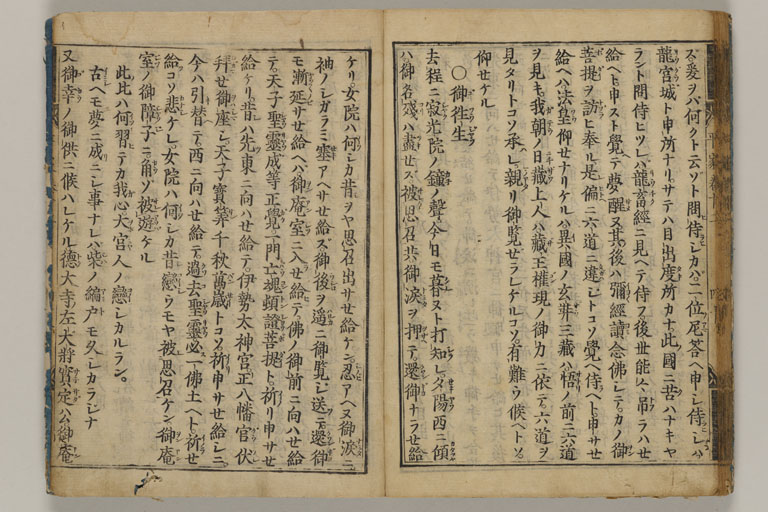 ズ爰ヲバ何クト云ソト問侍シカハ二位尼答ヘ申シ侍シハ
龍宮城ト申所ナリサテハ目出度所カナ此國ニ苦ハナキヤ
ラント問侍ヒツレハ龍畜經ニ見ヘテ侍フ後世能々吊ラハセ
給ヘト申スト覺テ夢ノ醒又其後ハ彌經讀念佛シテカノ御
菩提ヲ訪ヒ奉ル是偏ニ六道ニ違シトコソ覺ヘ侍ヘト申サセ
給ヘハ法皇仰セナリケルハ異國ノ玄弉三藏ハ悟ノ前ニ六道
ヲ見キ我朝ノ日藏上人ハ藏王權現ノ御力ニ依テ六道ヲ
見タリトコソ承レ親リ御覧セラレケルコソ有難ウ候ヘトソ
仰セケル
〇御往生
去程ニ寂光院ノ鐘ノ聲今日モ暮ヌト打知レタ陽西ニ傾
ハ御名殘ハ盡セズ被思召共御涙ヲ押テ還御ナラセ給
ケリ女院ハ何シカ昔ヲヤ思召出サセ給ケン忍アヘヌ御涙ニ
袖ノシガラミ塞アヘサセ給ズ御後ヲ遥ニ御覧シ送テ還御
モ漸延サセ給ヘバ御庵室ニ入セ給テ佛ノ御前ニ向ハセ給
テ天子聖靈成等正覺一門亡魂頓證菩提ト祈リ申サセ
給ケリ昔ハ先東ニ向ハセ給テ伊勢大神宮正八幡宮伏
拜セ御座シ天子寳筭千秋萬歳トコソ祈申サセ給シニ
今ハ引替テ西ニ向ハセ給テ過去聖靈必一佛土ヘト祈セ
給コソ悲ケレ女院ハ何シカ昔戀ウモヤ被思召ケン御庵
室ノ御障子ニ角ソ被遊ケル
此比ハ何習テカ我心大宮人ノ戀シカルラン。
古ヘモ夢ニ成ニシ事ナレハ柴ノ編戸モ久シカラシナ
又御幸ノ御供ニ候ハレケル德大寺左大將實定公御庵